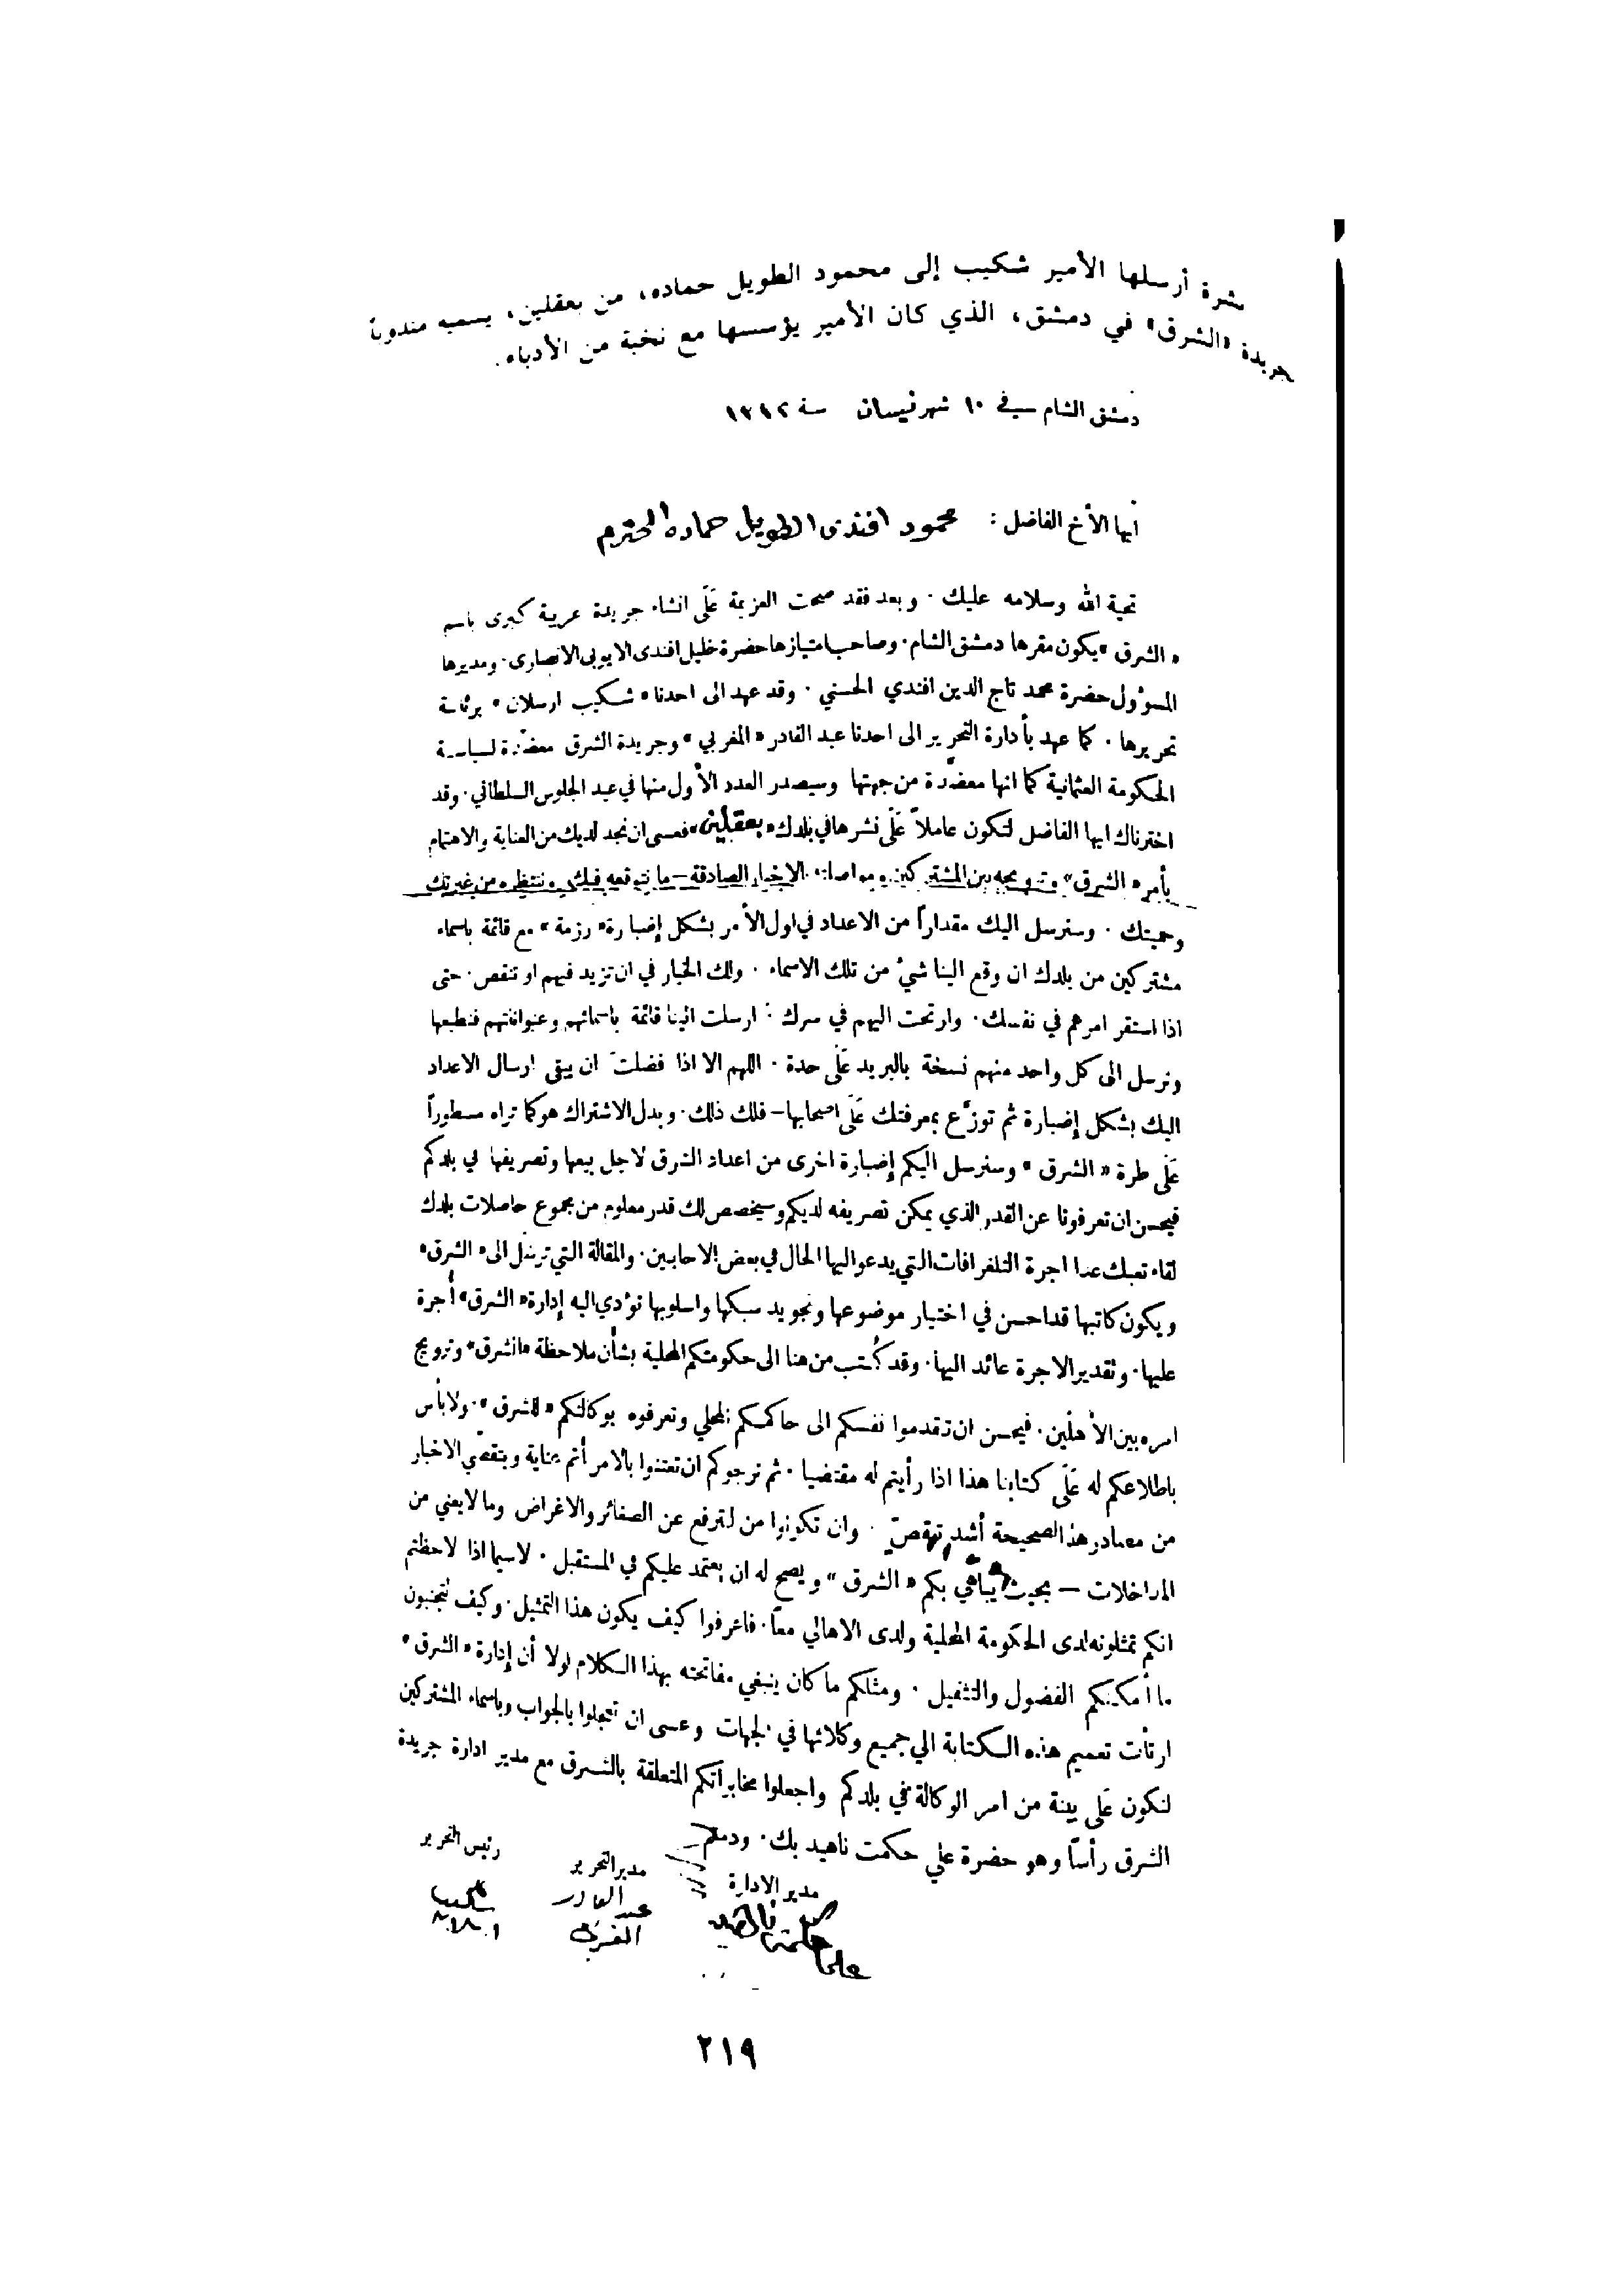 نشرة أرسلها الأمير شكيب إلى محمود الطويل حماده، من بعقلين، يسميه مندوباً
جريدة «الشرق» في دمشق، الذي كان الأمير يؤسسها مع نخبة من الأدباء.
دمشق الشام في ١٠ شهر نيسان سنة
أيها الأخ الفاضل: محمود افندى الطويل حماده المحترم
تحية الله وسلامه عليك . وبعد فقد صحت العزيمة عَلَى انشاء جريدة عربية كبرى باسم
« الشرق » يكون مقرها دمشق الشام . وصاحب امتيازها حضرة خليل افندى الايوبى الانصارى . ومديرها
المسؤول حضرة محمد تاج الدين افندي الحسني . وقد عهد الى احدنا « شكيب ارسلان » برئاسة
تحريرها . كما عهد بأدارة التحرير الى احدنا عبد القادر « المغربي » وجريدة الشرق معضّدة لسياسة
الحكومة العثمانية كما انها معضّدة من جهتها وسيصدر العدد الأول منها في عيد الجلوس السلطاني . وقد
اخترناك ايها الفاضل لتكون عاملاً عَلَى نشرها في بلدك « بعقلين » فعسى ان نجد لديك من العناية والاهتمام
بأمر « الشرق » وترويجه بين المشتركين ومواصلته الاخبار الصادقة – ما نتوقعه فيك وننتظره من غيرتك
وحميتك . وسنرسل اليك مقداراً من الاعداد في اول الأمر بشكل إضبارة « رزمة » مع قائمة باسماء
مشتركين من بلدك ان وقع الينا شيء من تلك الاسماء . ولك الخيار في ان تزيد فيهم او تنقص . حتى
اذا استقر امرهم في نفسك . وارتحت اليهم في سرك : ارسلت الينا قائمة باسمائهم وعنواناتهم فنطبعها
ونرسل الى كل واحد منهم نسخة بالبريد عَلَى حدة . اللهم الا اذا فضلت ان يبقى ارسال الاعداد
اليك بشكل إضبارة ثم توزّع بمعرفتك عَلَى اصحابها – فلك ذلك . وبدل الاشتراك هو كما تراه مسطوراً
عَلَى طرة « الشرق » وسنرسل اليكم إضبارة اخرى من اعداد الشرق لاجل بيعها وتصريفها في بلدكم
فيحسن ان تعرفونا عن القدر الذي يمكن تصريفه لديكم وسيخصص لك قدر معلوم من مجموع حاصلات بلدك
لقاء تعبك عدا اجرة التلغرافات التي يدعو اليها الحال في بعض الاحايين . والمقالة التي ترسل الى « الشرق »
ويكون كاتبها قد احسن في اختيار موضوعها وتجويد سبكها واسلوبها تؤدي اليه إدارة « الشرق » أجرة
عليها . وتقدير الاجرة عائد اليها . وقد كُتب من هنا الى حكومتكم المحلية بشأن ملاحظة « الشرق » وترويج
امره بين الأهلين . فيحسن ان تقدموا نفسكم الى حاكمكم المحلي وتعرفوه بوكالتكم « للشرق » . ولا بأس
باطلاعكم له عَلَى كتابنا هذا اذا رأيتم له مقتضيا . ثم نرجوكم ان تعتنوا بالامر أتم عناية وبتقصّي الاخبار
من مصادرها الصحيحة أشد تقصّ . وان تكونوا من لترفع عن الصغائر والاغراض وما لا يعني من
المداخلات – بحيث يباهي بكم « الشرق » ويصح له ان يعتمد عليكم في المستقبل . لاسيما اذا لاحظتم
انكم تمثلونه لدى الحكومة المحلية ولدى الاهالي معاً . فاعرفوا كيف يكون هذا التمثيل . وكيف تتجنبون
ما أمكنكم الفضول والتثقيل . ومثلكم ما كان ينبغي مفاتحته بهذا الكلام لولا أن إدارة « الشرق »
ارتأت تعميم هذه الكتابة الي جميع وكلائها في الجهات وعسى ان تعجلوا بالجواب وباسماء المشتركين
لنكون عَلَى بينة من امر الوكالة في بلدكم واجعلوا مخابراتكم المتعلقة بالشرق مع مدير ادارة جريدة
الشرق رأساً وهو حضرة علي حكمت ناهيد بك . ودمتم
مدير الادارة مدير التحرير رئيس التحرير
علي حكمت ناهيد عبد القادر المغربي شكيب ارسلان
٢١٩